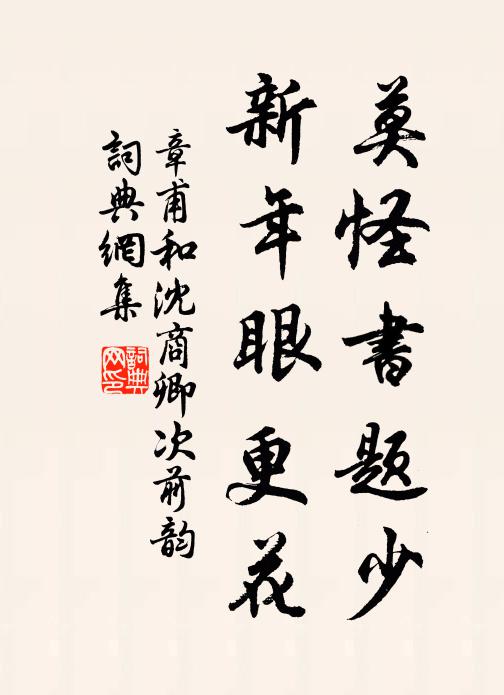 莫怪書題少
新年眼更花
章甫和沈商卿次前韵
詞典網集
詞典网印